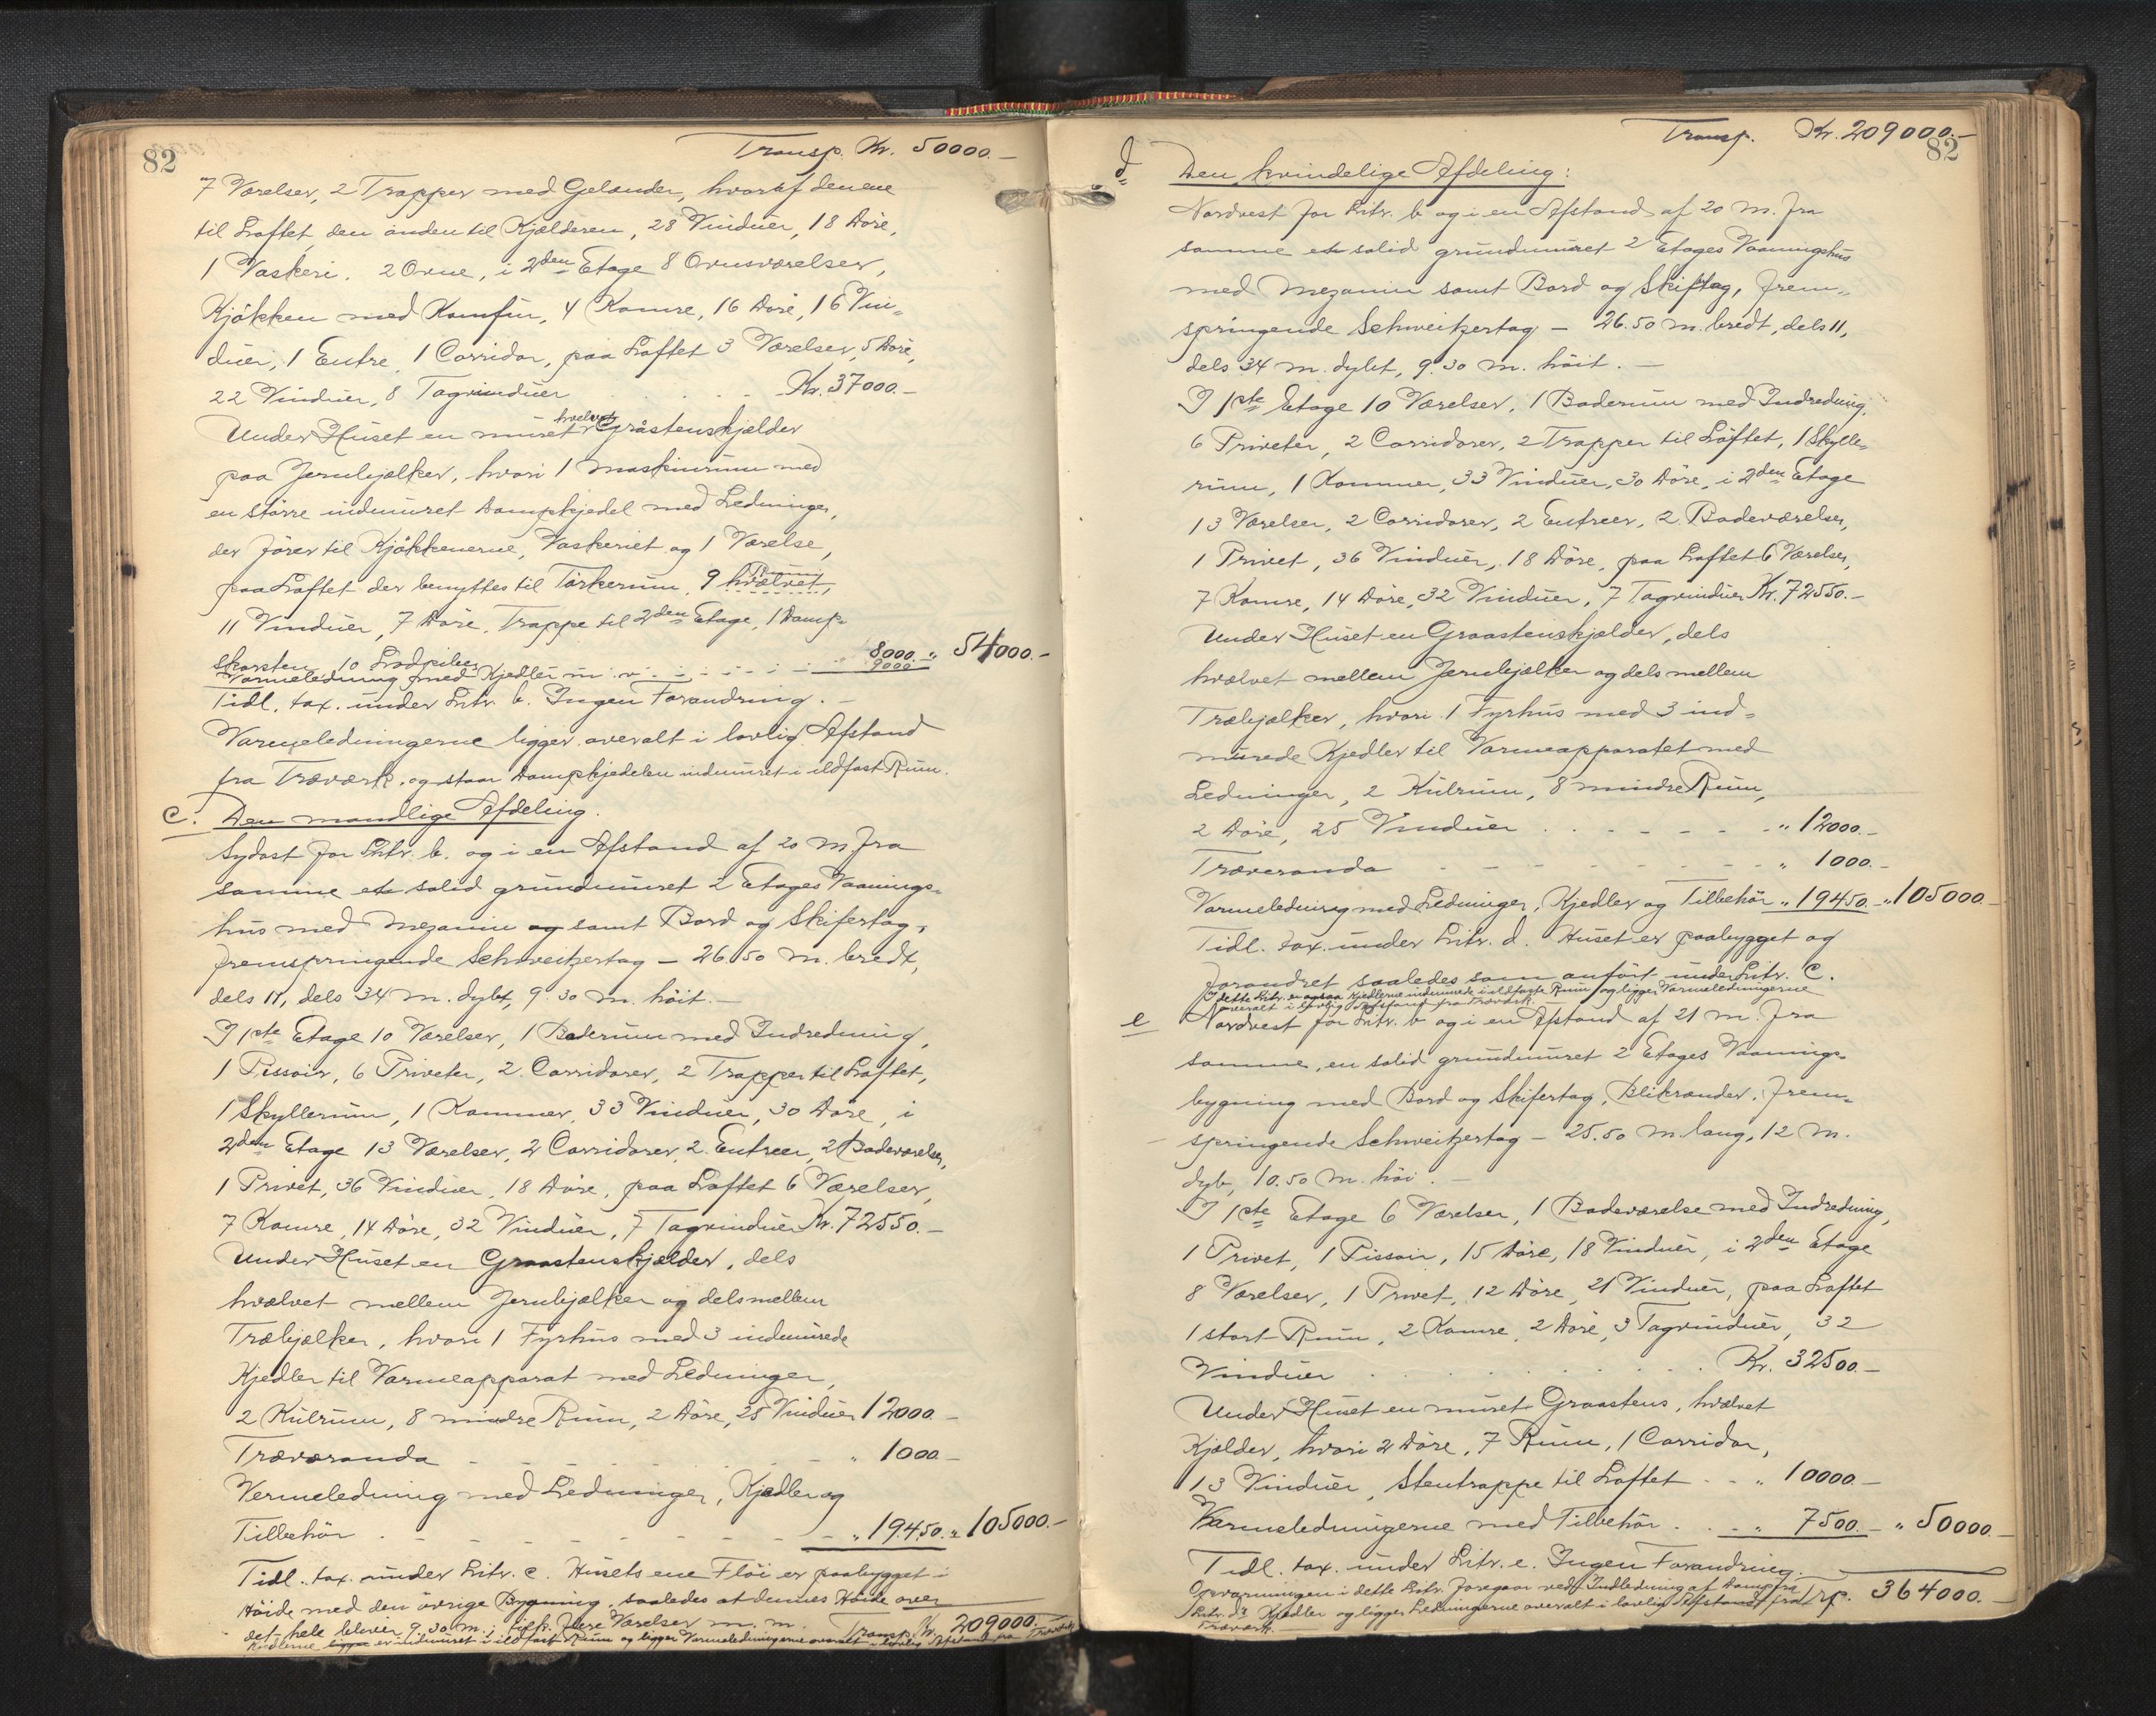 82
Transp. Kr. 50000.-
7 Værelser, 2 Trapper med Gelænder, hvoraf den ene
til Loftet, den anden til Kjælderen, 28 Vinduer, 18 Döre,
1 Vaskeri, 2 Ovne, i 2den Etage 8 Ovnsværelser,
Kjökken med Komfür, 4 Kamre, 16 Döre, 16 Vin-
duer, 1 Entre, 1 Corridor, paa Loftet 3 Værelser, 5 Döre,
22 Vinduer, 8 Tagvinduer . . . . Kr. 37000.-
hvælvet
Under Huset en muret Gråstenskjælder
paa Jernbjælker, hvori 1 Maskinrum med
en större indmuret Dampkjedel med Ledninger,
der förer til Kjökkenerne, Vaskeriet og 1 Værelse,
paa Loftet der benyttes til Törkerum, 9 hvælvet Rum,
11 Vinduer, 7 Döre, Trappe til 2den Etage, 1 Damp-
skorsten, 10 Lodpiber 8000.- " 54000.-
Varmeledning med Kjedler m. v. . . . . 9000.
Tidl. tax. under Litr. b. Ingen Forandring. -
Varmeledningerne ligger overalt i lovlig Afstand
fra Træværk, og staar Dampkjedelen indmuret i ildfast Rum.
c. Den mandlige Afdeling.
Sydost for Litr. b. og i en Afstand af 20 M fra
samme et solid grundmuret 2 Etages Vaanings-
hus med Mezanin og samt Bord og Skifertag,
fremspringende Schweitzertag - 26.50 M. bredt,
dels 11, dels 34 M. dybt, 9.30 M. höit. -
I 1ste Etage 10 Værelser, 1 Baderum med Indredning,
1 Pissoir, 6 Priveter, 2 Corridorer, 2 Trapper til Loftet,
1 Skyllerum, 1 Kammer, 33 Vinduer, 30 Döre, i
2den Etage 13 Værelser, 2 Corridorer, 2 Entreer, 2 Badeværelser,
1 Privet, 36 Vinduer, 18 Döre, paa Loftet 6 Værelser,
7 Kamre, 14 Döre, 32 Vinduer, 7 Tagvinduer Kr. 72550.-
Under Huset en Graastenskjælder, dels
hvælvet mellem Jernbjælker og dels mellem
Træbjælker, hvori 1 Fyrhus med 3 indmurede
Kjedler til Varmeapparat med Ledninger,
2 Kulrum, 8 mindre Rum, 2 Döre, 25 Vinduer 12000.-
Træveranda - - - - - " 1000.-
Varmeledning med Ledninger, Kjedler og
Tilbehör . - - - - - " 19450. " 105000.-
Tidl. tax. under Litr. c. Husets ene Flöi er paabygget i
Höide med den övrige Bygning, saaledes at dennes Höide over
det hele bliver 9.30 M.; tilf. flere Værelser m. m. Transp. Kr. 209000.-
Kjedlerne ligger er indmuret i ildfast Rum og ligger Varmeledningerne overalt i lovlig Afstand fra Træværk.
Transp. Kr. 209000.-
82
d. Den kvindelige Afdeling:
Nordvest for Litr. b og i en Afstand af 20 M. fra
samme et solid grundmuret 2 Etages Vaaningshus
med Mezanin samt Bord og Skiftag, frem-
springende Schweitzertag - 26.50 M. bredt, dels 11,
dels 34 M. dybt, 9.30 M. höit. -
I 1ste Etage 10 Værelser, 1 Baderum med Indredning,
6 Priveter, 2 Corridorer, 2 Trapper til Loftet, 1 Skylle-
rum, 1 Kammer, 33 Vinduer, 30 Döre, i 2den Etage
13 Værelser, 2 Corridorer, 2 Entreer, 2 Badeværelser,
1 Privet, 36 Vinduer, 18 Döre, paa Loftet 6 Værelser,
7 Kamre, 14 Döre, 32 Vinduer, 7 Tagvinduer Kr. 72550.-
Under Huset en Graastenskjælder, dels
hvælvet mellem Jernbjælker og dels mellem
Træbjælker, hvori 1 Fyrhus med 3 ind-
murede Kjedler til Varmeapparatet med
Ledninger, 2 Kulrum, 8 mindre Rum,
2 Döre, 25 Vinduer . . - - - " 12000.-
Træveranda - - - - - " 1000.-
Varmeledning med Ledninger, Kjedler og Tilbehör " 19450.- " 105000.-
Tidl. tax. under Litr. d. Huset er paabygget og
forandret saaledes som anfört under Litr. C.
I dette Litr. er ogsaa Kjedlerne indmurede i ildfaste Rum og ligger Varmeledningerne
overalt i lovlig Afstand fra Træværk. -
e Nordvest for Litr. b og i en Afstand af 21 M. fra
samme, en solid grundmuret 2 Etages Vaanings-
bygning med Bord og Skifertag, Blikrender, frem-
springende Schweitzertag - 25.50 M lang, 12 M.
dyb, 10.50 M. höi. -
I 1ste Etage 6 Værelser, 1 Badeværelse med Indredning,
1 Privet, 1 Pissoir, 15 Döre, 18 Vinduer, i 2den Etage
8 Værelser, 1 Privet, 12 Döre, 21 Vinduer, paa Loftet
1 stort Rum, 2 Kamre, 2 Döre, 3 Tagvinduer, 32
Vinduer . . . . . . Kr. 32500.-
Under Huset en muret Graastens, hvælvet
Kjælder, hvori 2 Döre, 7 Rum, 1 Corridor,
13 Vinduer, Stentrappe til Loftet - - " 10000.-
Varmeledningerne med Tilbehör . . - " 7500.- " 50000.-
Tidl. tax. under Litr. e. Ingen Forandring.
Opvarmningen i dette Litr. foregaar ved Indledning af Damp fra
Litr. d's Kjedler og ligger Ledningerne overalt i lovlig Afstand fra Trp. 364000.-
Træværk.